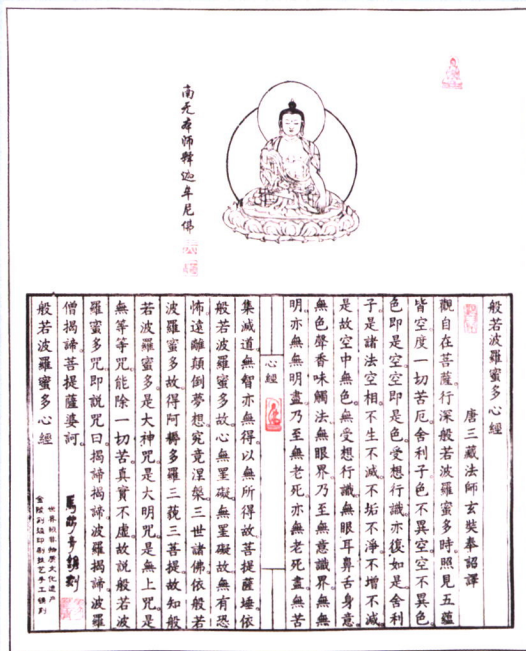 南无本師釋迦牟尼佛
般若波羅蜜多心經
唐三藏法師玄奘奉詔譯
觀自在菩薩行深般若波羅蜜多時照見五蘊
皆空度一切苦厄舍利子色不異空空不異色
色即是空空即是色受想行識亦復如是舍利
子是諸法空相不生不滅不垢不淨不增不減
是故空中無色無受想行識無眼耳鼻舌身意
無色聲香味觸法無眼界乃至無意識界無無
明亦無無明盡乃至無老死亦無老死盡無苦
心經
集滅道無智亦無得以無所得故菩提薩埵依
般若波羅蜜多故心無罣礙無罣礙故無有恐
怖遠離顛倒夢想究竟涅槃三世諸佛依般若
波羅蜜多故得阿耨多羅三藐三菩提故知般
若波羅蜜多是大神咒是大明咒是無上咒是
無等等咒能除一切苦真實不虛故說般若波
羅蜜多咒即說咒曰揭諦揭諦波羅揭諦波羅
僧揭諦菩提薩婆訶
般若波羅蜜多心經
世界级非物质文化遗产
金陵刻经印刷技艺手工镌刻